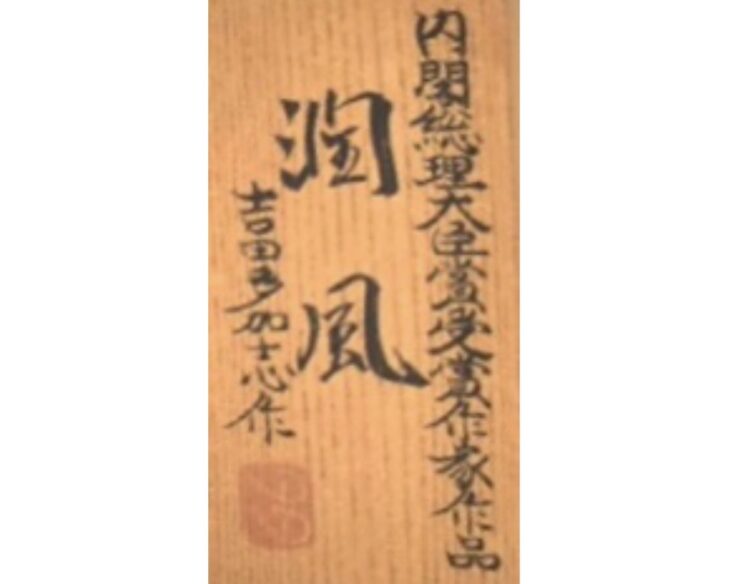 内閣総理大臣賞受賞作家作品
潤風
吉田多加志作